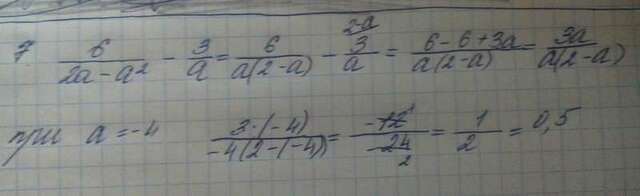 7 6/(2a-a²) - 3/a = 6/(a(2-a)) - 3/a (2-a) = (6-6+3a)/(a(2-a)) = 3a/(a(2-a))
при a=-4 (3·(-4))/(-4(2-(-4))) = (-12)/(-24) 1 2 = 1/2 = 0,5